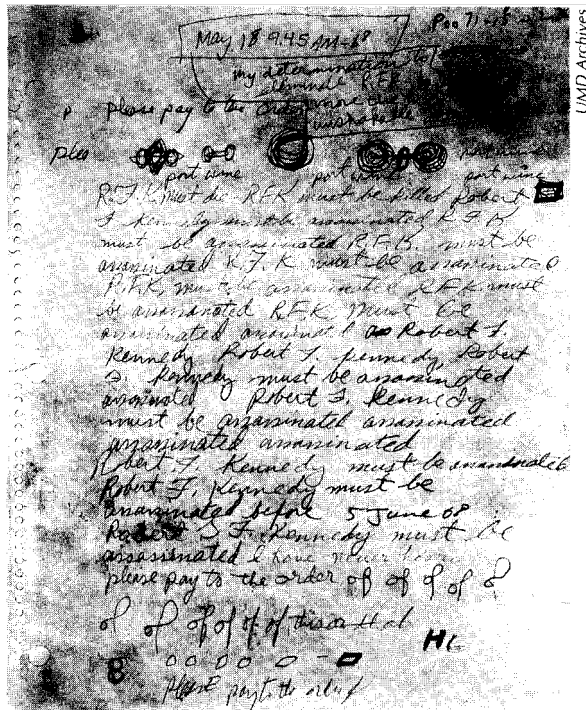 May 18 9.45 AM-68
my determination to
eliminate R.F.K.
please pay to the order
more
plea
port wine port wine port wine
R.F.K must die R.F.K must be killed Robert
F. Kennedy must be assassinated R.F.K
must be assassinated R.F.K. must be
assassinated R.F.K must be assassinated
R.F.K. must be assassinated R.F.K must
be assassinated R.F.K. must be
assassinated Robert F.
Kennedy Robert F. Kennedy, Robert
F. Kennedy must be assassinated
assassinated Robert F. Kennedy
must be assassinated assassinated
assassinated assassinated
Robert F. Kennedy must be assassinated
Robert F. Kennedy must be
assassinated before 5 June 68
Robert F. Kennedy must be
assassinated I have never
please pay to the order of of of of
of of of of of of this or that
8 0 0 0 0
please pay to the order of
UMD Archives